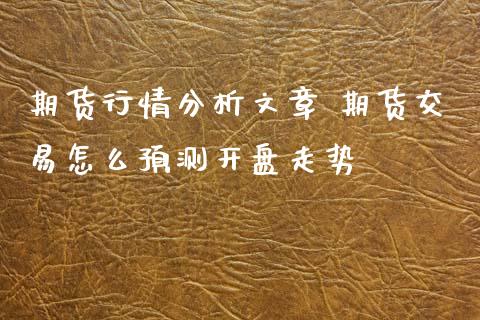 期货行情分析文章 期货交
易怎么预测开盘走势